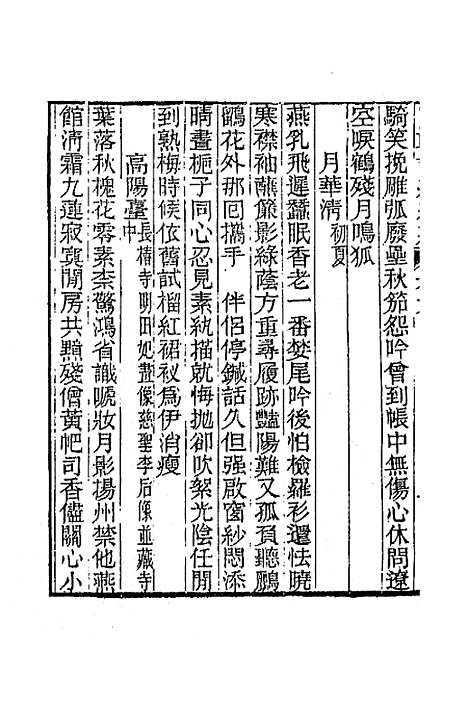 騎笑挽雕弧廢壘秋笳怨吟曾到帳中無傷心休問遼
空唳鶴殘月鳴狐
月華清初夏
燕乳飛遲蠶眠香老一番婪尾吟後怕檢羅衫還怯曉
寒襟袖蘸簾影綠蔭方重尋履跡豔陽難又孤負聽鸝
鸝花外那回攜手　伴侶停鍼話久但强啟窗紗悶添
晴晝梔子同心忍見素紈描就悔拋卻吹絮光陰任閒
到熟梅時候依舊試榴紅裙衩爲伊消瘦
高陽臺長椿寺明田妃畫像慈聖李后像並藏寺中
葉落秋槐花零素柰驚鴻省識啼妝月影揚州禁他燕
館清霜九蓮寂寞閒房共黯殘僧黃帊司香儘關心小